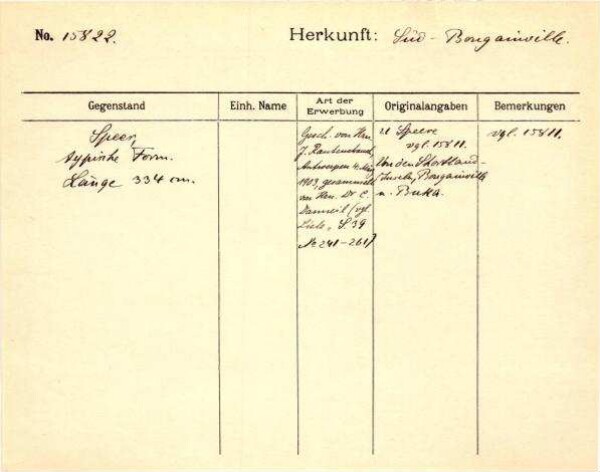 No. 15822.
Herkunft: Süd-Bougainville.
Gegenstand
Einh. Name
Art der Erwerbung
Originalangaben
Bemerkungen
Speer,
typische Form.
Länge 334 cm.
Gesch. von Hrn.
J. Rautenstrauch,
Antwerpen
1903, gesammelt
von Hrn. Dr. C.
Danneil (vgl.
Liste, S. 39
No 241-261)
21 Speere
vgl. 15811.
Von den Shortland-
Inseln, Bougainville
u. Buka.
vgl. 15811.